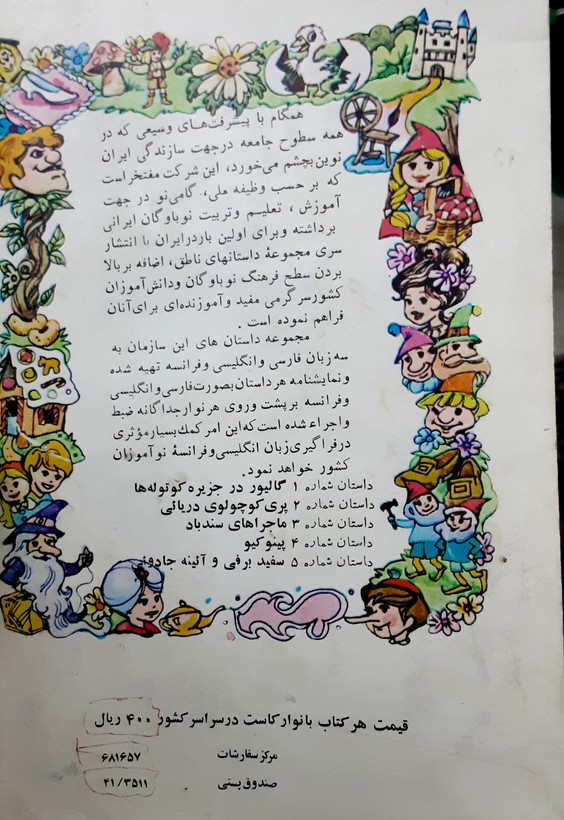 همگام با پیسرفت‌های وسیعی که در
همه سطوح جامعه درجهت سازندگی ایران
نوین بچشم می‌خورد، این شرکت مفتخر است
که بر حسب وظیفه ملی، گامی‌نو در جهت
آموزش، تعلیم و تربیت نوباوگان ایرانی
برداشته و برای اولین بار در ایران با انتشار
سری مجموعهٔ داستانهای ناطق، اضافه بر بالا
بردن سطح فرهنگ نوباوگان و دانش‌آموزان
کشور سرگرمی مفید و آموزنده‌ای برای آنان
فراهم نموده است.
مجموعه داستان های این سازمان به
سه زبان فارسی و انگلیسی و فرانسه تهیه شده
و نمایشنامه هر داستان بصورت فارسی و انگلیسی
و فرانسه بر پشت و روی هر نوار جداگانه ضبط
و اجراء شده است که این امر کمک بسیار مؤثری
در فراگیری زبان انگلیسی و فرانسهٔ نوآموزان
کشور خواهد نمود.
داستان شماره ۱ گالیور در جزیره کوتوله‌ها
داستان شماره ۲ پری کوچولوی دریائی
داستان شماره ۳ ماجراهای سندباد
داستان شماره ۴ پینوکیو
داستان شماره ۵ سفید برفی و آئینه جادوئی
قیمت هر کتاب با نوار کاست در سراسر کشور ۴۰۰ ریال
مرکز سفارشات ۶۸۱۶۵۷
صندوق پستی ۴۱/۳۵۱۱